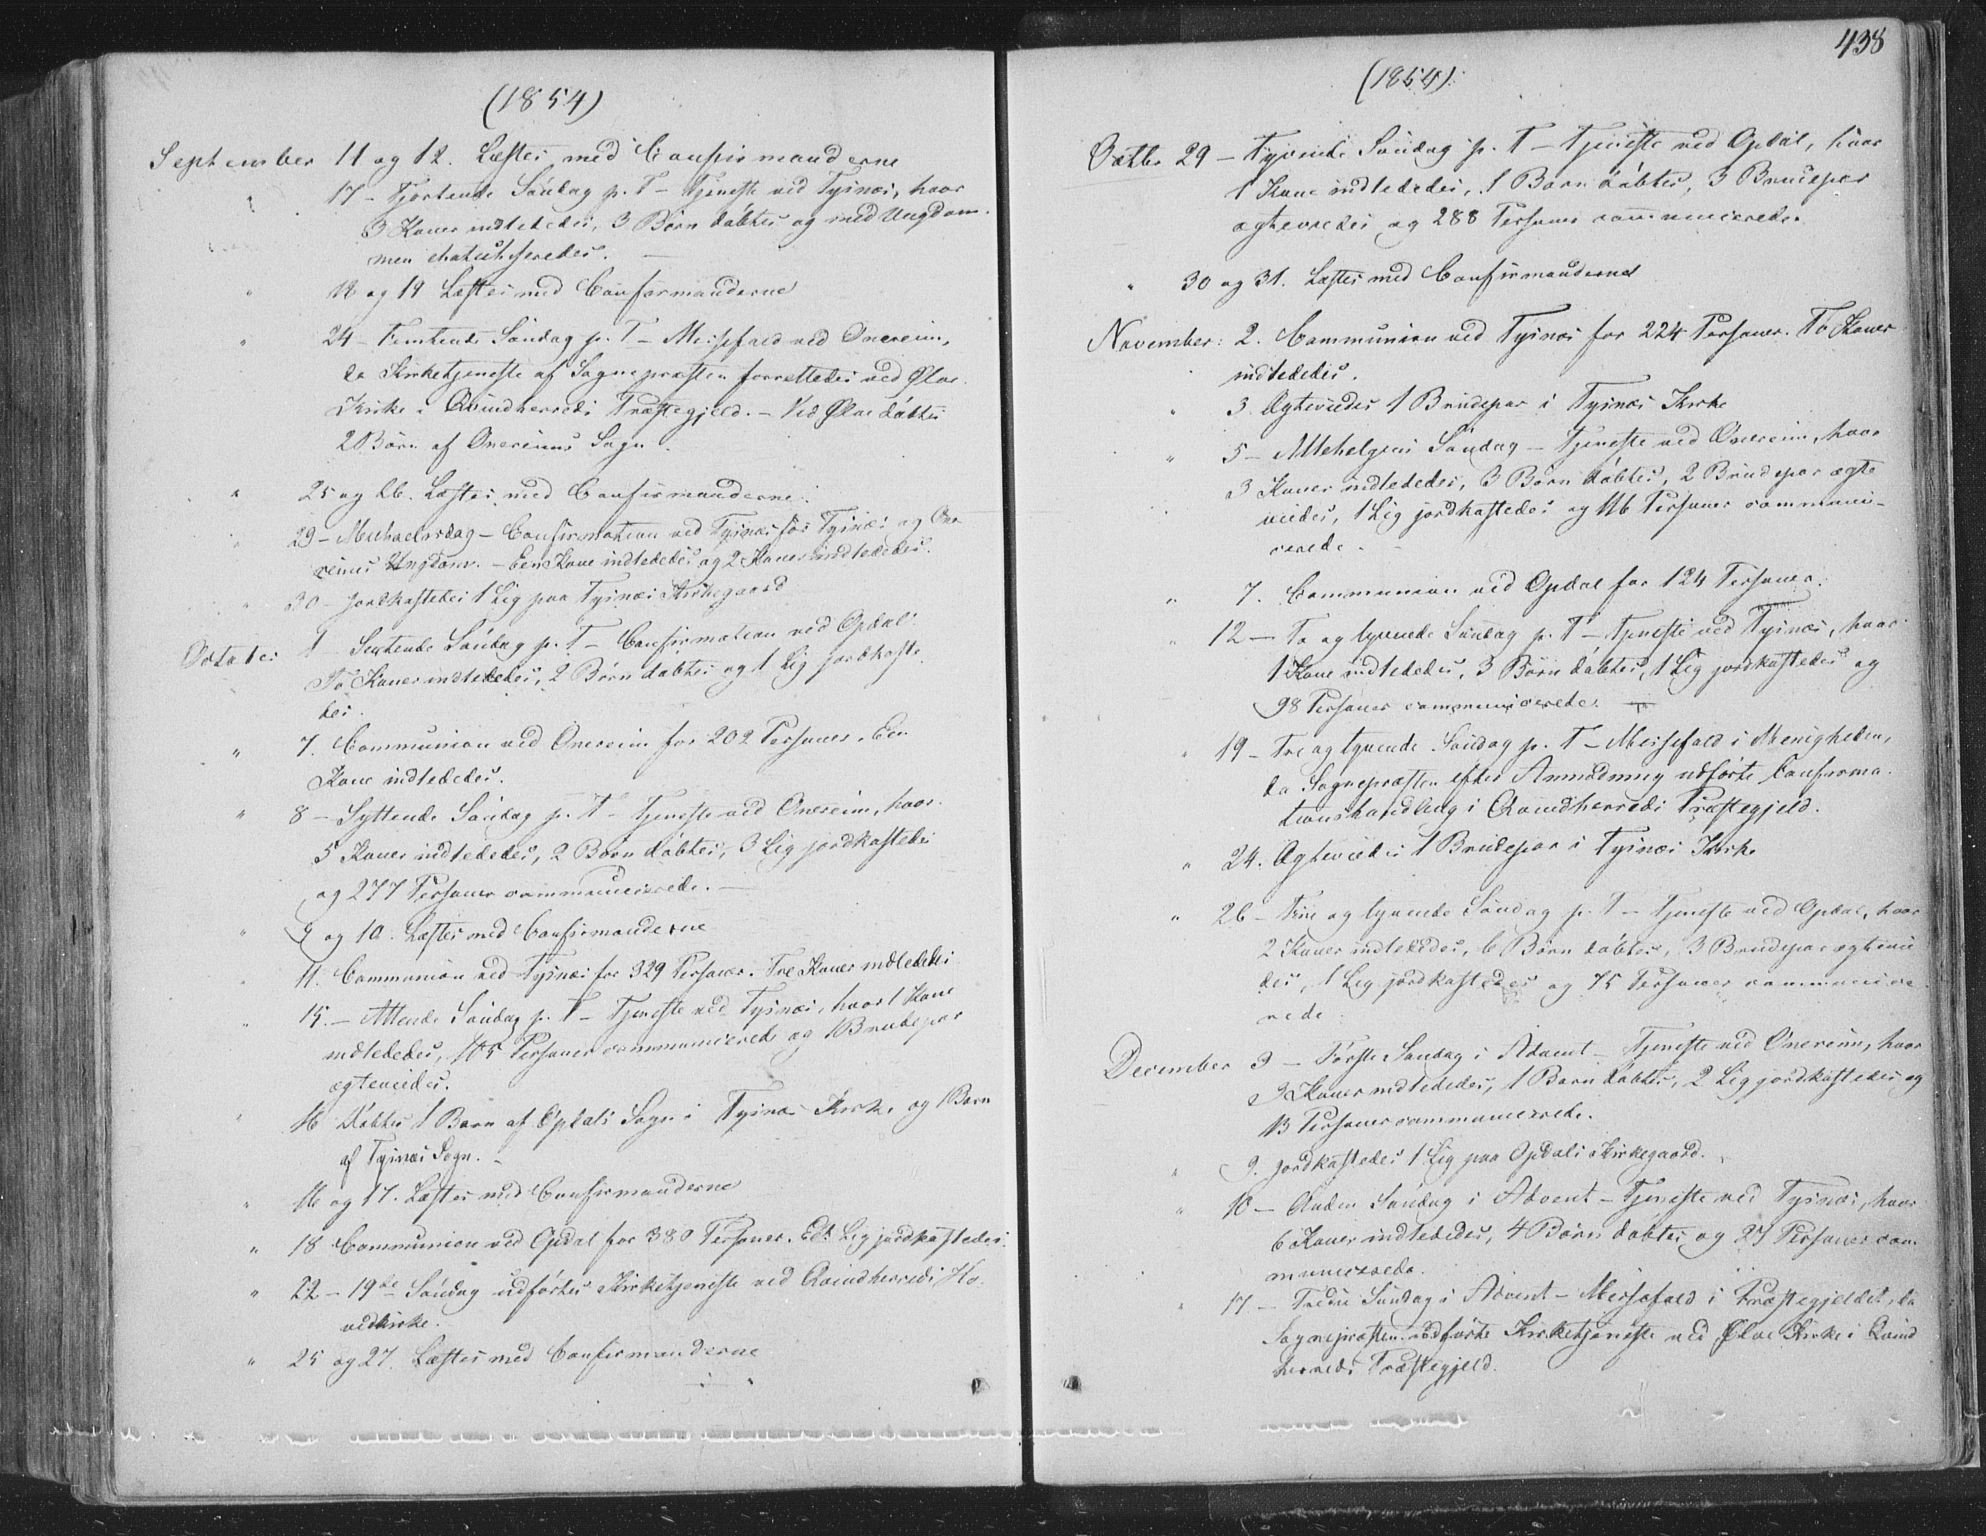 (1854)
September 11 og 12. Læstes med Confirmanderne
" 17 – Fjortende Søndag p. T – Tjeneste ved Tysnæs, hvor
3 Koner indlededes, 3 Børn døbtes og med Ungdom-
men chatechiseredes. –
" 18 og 19 Læstes med Confirmanderne
" 24 – Femtende Søndag p. T – Messefald ved Onereim,
da Kirketjeneste af Sognepræsten forrettedes ved Ølve
Kirke i Qvindherreds Præstegjeld. – Ved Ølve døbtes
2 Børn af Onereims Sogn.
" 25 og 26. Læstes med Confirmanderne.
" 29 – Michaelsdag – Confirmation ved Tysnæs for Tysnæs og One-
reims Ungdom. – Een Kone indlededes og 2 Koner indlededes.
" 30 – Jordkastedes 1 Lig paa Tysnæs Kirkegaard
October 1 – Sextende Søndag p. T – Confirmation ved Opdal.
To Koner indlededes, 2 Børn døbtes og 1 Lig jordkaste-
des.
" 7. Communion ved Onereim for 202 Personer. Een
Kone indlededes.
" 8 – Syttende Søndag p. T – Tjeneste ved Onereim, hvor
5 Koner indlededes, 2 Børn døbtes, 3 Lig jordkastedes
og 277 Personer communicerede. –
" 9 og 10. Læstes med Confirmanderne
" 11. Communion ved Tysnæs for 329 Personer. Tre Koner indlededes
" 15. – Attende Søndag p. T – Tjeneste ved Tysnæs, hvor 1 Kone
indlededes, 105 Personer communicerede og 1 Brudepar
ægteviedes.
" 16 Døbtes 1 Barn af Opdals Sogn i Tysnæs Kirke og 1 Barn
af Tysnæs Sogn. –
" 16 og 17. Læstes med Confirmanderne
" 18 Communion ved Opdal for 380 Personer. Edt Lig jordkastedes.
" 22 – 19de Søndag udførtes Kirketjeneste ved Qvindherreds Ho-
vedkirke.
" 25 og 27. Læstes med Confirmanderne
438
(1854)
Octbr 29 – Tyvende Søndag p. T – Tjeneste ved Opdal, hvor
1 Kone indlededes, 1 Barn døbtes, 3 Brudepar
ægteviedes og 288 Personer communicerede.
" 30 og 31. Læstes med Confirmanderne
November: 2. Communion ved Tysnæs for 224 Personer. To Koner
indlededes.
" 3. Ægteviedes 1 Brudepar i Tysnæs Kirke
" 5 – Allehelgens Søndag – Tjeneste ved Onereim, hvor
3 Koner indlededes, 3 Børn døbtes, 2 Brudepar ægte
viedes, 1 Lig jordkastedes og 116 Personer communi-
cerede. –
" 7. Communion ved Opdal for 124 Personer.
" 12 – To og tyvende Søndag p. T – Tjeneste ved Tysnæs, hvor
1 Kone indlededes, 3 Børn døbtes, 1 Lig jordkastedes og
98 Personer communicerede.
" 19 – Tre og tyvende Søndag p. T – Messefald i Menigheden,
da Sognepræsten efter Anmodning udførte Confirma-
tionshandling i Qvindherreds Præstegjeld.
" 24. Ægteviedes 1 Brudepar i Tysnæs Kirke
" 26 – Fire og tyvende Søndag p. T – Tjeneste ved Opdal, hvor
2 Koner indlededes, 6 Børn døbtes, 3 Brudepar ægtevie
des, 1 Lig jordkastedes og 75 Personer communice
rede.
December 3 – Første Søndag i Advent – Tjeneste ved Onereim, hvor
2 Koner indlededes, 1 Barn døbtes, 2 Lig jordkastedes og
13 Personer communicerede.
" 9. Jordkastedes 1 Lig paa Opdals Kirkegaard.
" 10 – Anden Søndag i Advent – Tjeneste ved Tysnæs, hvor
6 Koner indlededes, 4 Børn døbtes og 27 Personer com
municerede.
" 17 – Tredie Søndag i Advent – Messefald i Præstegjeldet, da
Sognepræsten udførte Kirketjeneste ved Ølve Kirke i Qvind
herreds Præstegjeld.